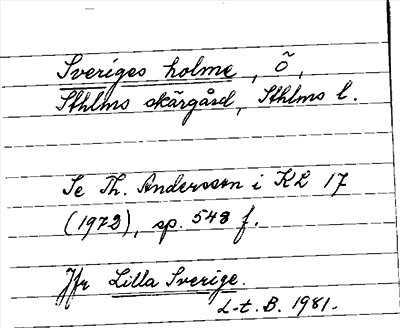 Sveriges holme, Ö,
Sthlms skärgård, Sthlms l.
Se Th. Andersson i KL 17
(1972), sp. 543 f.
Jfr Lilla Sverige.
L-t. B. 1981.